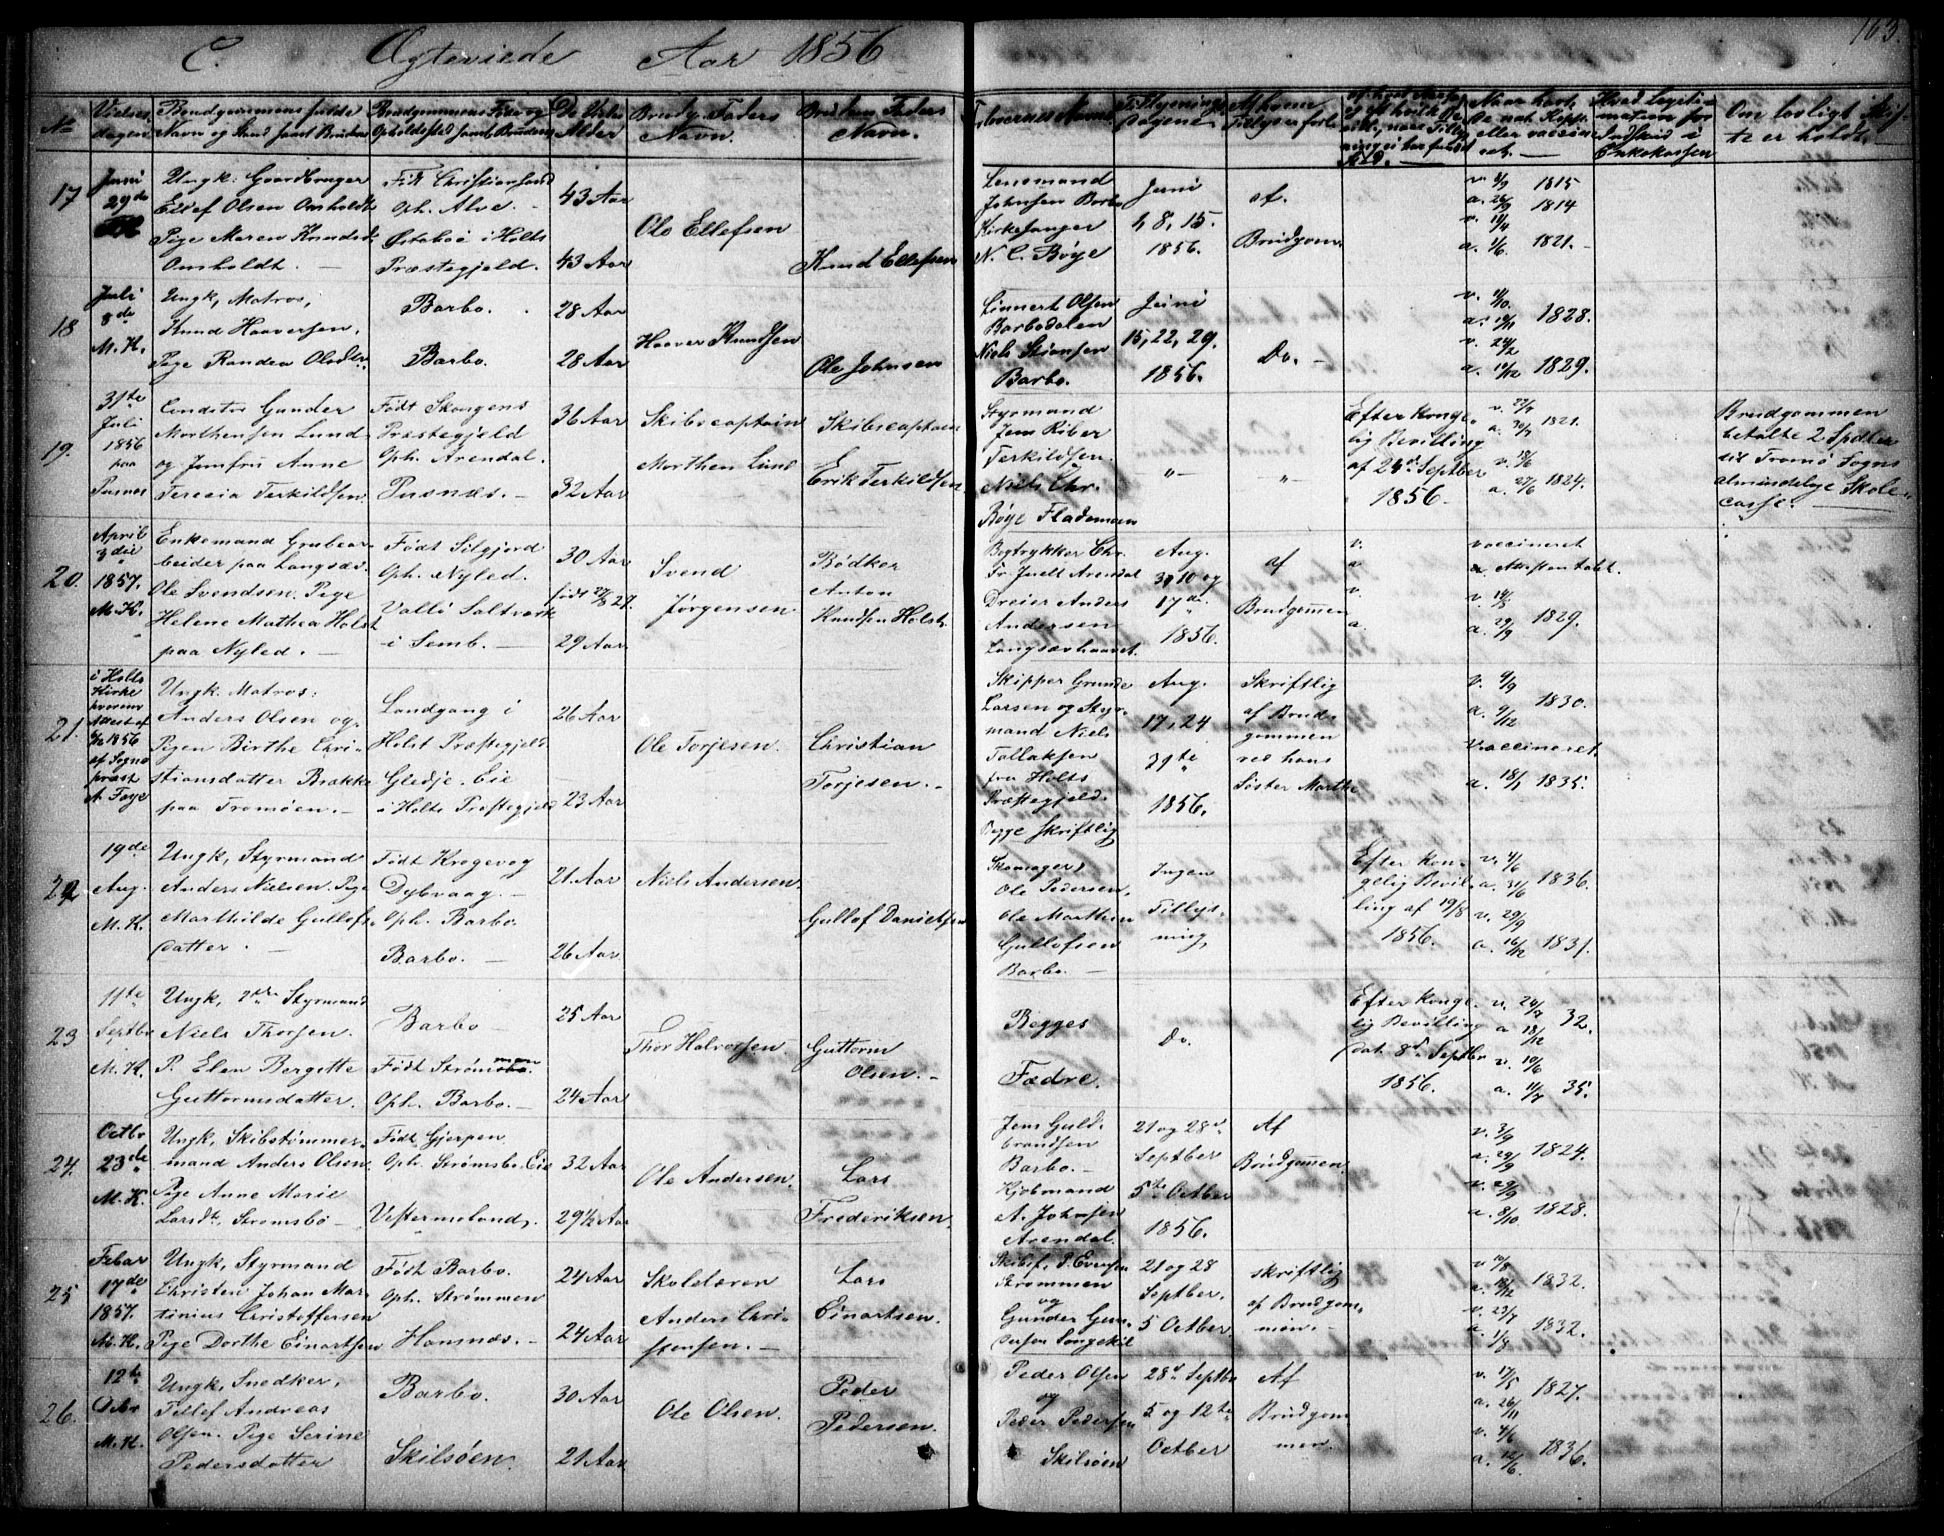 C. Ægteviede Aar 1856
163.
No
Vielses
dagen
Brudgommens fulde
Navn og Stand samt Brudens
Brudgommens Føde og
Opholdssted samt Brudens
De Viedes
Alder
Brudg. Faders
Navn.
Brudens Faders
Navn.
Forlovernes Navne
Tillysnings
dagene
Af hvem
Tillysn. forl.
Naar havt
de nat. Kopp.
eller vaccine
ret.
Hvad Legiti-
mation for
Indskud i
Enkekassen
Om lovligt Skif-
te er holdt.
17
Juni
29de
Ungk: Gaardbruger
Ellef Olsen Omholdt
Pige Maren Knudsd.
Omholdt.
Født Christiansand
Oph. Alve.
Østebøe i Holts
Præstegjeld.
43 Aar
43 Aar
Ole Ellefsen
Knud Ellefsen
Lensmand
Johnsen Barbo
Kirkesanger
N. C. Bøye
Juni
1, 8, 15.
1856.
af.
Brudgom.
v. 4/9 1815
a. 26/9 1814
v. 18/4
a. 1/6 1821.
18
Juli
8de
M. K.
Ungk, Matros,
Knud Haaversen,
Pige Randea Olsdtr.
Barbo.
Barbo.
28 Aar
28 Aar
Haaver Knudsen
Ole Johnsen
Linnert Olsen
Barbodalen
Niels Stiansen
Barbo.
Juni
15, 22, 29.
1856.
Do.
v. 11/10
a. 19/11 1828.
v. 24/2
a. 14/12 1829.
19.
31te
Juli
1856
paa
Pusnes
Gunder
Morthensen Lund
og Jomfru Anne
Teresia Terkildsen
Født Skougens
Præstegjeld
Oph. Arendal.
Pusnæs.
36 Aar
32 Aar
Skibscaptain
Morthen Lund
Skibscaptain
Erik Terkildsen
Styrmand
Jens Riber
Terkildsen.
Niels Chr.
Bøye Flademoen
"
"
Efter konge-
lig Bevilling
af 24d Septber
1856.
v. 22/7
a. 30/7 1821.
v. 18/6
a. 27/6 1824.
Brudgommen
betalte 2 Spdler
til Tromø Sogns
almindelige Skole-
casse.
20.
April
3die
1857.
M. K.
Enkemand Grubear-
beider paa Langsæv.
Ole Svendsen. Pige
Helene Mathea Holst
paa Nyled.
Født Silgjord
Oph. Nyled.
Vallö Saltverk
i Semb.
30 Aar
født 27/8 27.
29 Aar
Svend
Jørgensen
Bødker
Anton
Knudsen Holst.
Bogtrykker Chr.
Fr. Juell Arendal
Dreier Anders
Andersen
Langsævhauvet.
Aug.
3, 10 og
17de
1856.
af
Brudgommen
v.
a
v.
a.
vaccineret
a. Attesten tabt.
v. 14/8
a. 29/9 1829.
21.
i Holts
Kirke
hvorom
Attest af
1856
af Sogne
præst
A. Faye
Ungk. Matros:
Anders Olsen og
Pigen Birthe Chri-
stiansdatter Brække
paa Tromøen.
Landgang i
Holt Præstegjeld
Gledje. Eie
i Holts Præstegjeld
26 Aar
23 Aar
Ole Torjesen.
Christian
Torjesen.
Skipper Grunde
Larsen og Styr-
mand Niels
Tallaksen
fra Holts
Præstegjeld.
Begge skriftlig
Aug.
17, 24
31te
1856.
Skriftlig
af Brud-
gommen
ved hans
Søster Marthe
v. 4/9
a. 9/12 1830.
Vaccineret.
a. 18/1 1835.
22
19de
Aug.
M. K.
Ungk, Styrmand
Anders Nielsen. Pige
Marthilde Gullofs-
datter.
Født Krogevog
Dybvaag.
Oph. Barbo.
Barbo.
21 Aar
26 Aar
Niels Andersen.
Gullof Danielsen
Skomager
Ole Pedersen.
Ole Marthin
Gullofsen
Barbo.
Ingen
Tillys-
ning
Efter kon-
gelig Bevil-
ling af 19/8
1856.
v. 4/6
a. 31/6 1836.
v. 29/9
a. 16/12 1831.
23
11te
Septbr
M. K.
Ungk, 2den Styrmand
Niels Thorsen.
P. Elen Bergitte
Guttormsdatter.
Barbo
Født Strømmen
Oph. Barbo.
25 Aar
24 Aar
Thor Halvorsen.
Guttorm
Olsen.
Begges
Fædre.
Do.
Efter konge-
lig Bevilling
dat. 8d. Septbr
1856.
v. 24/7
a 18/12 32.
v. 10/6
a. 11/7 35.
24.
Octbr
23de
M. K.
Ungk, Skibstømmer-
mand Anders Olsen.
Pige Anne Marie
Larsdt. Strømsbö
Født Gjerpen
Oph. Strømsbo. Eie
Vestermoland.
32 Aar
29 1/2 Aar
Ole Andersen.
Lars
Frederiksen.
Jens Guld-
brandsen
Barbo.
Kjøbmand
A. Johnsen
Arendal.
21 og 28d
Septber
5te October
1856.
Af
Brudgommen.
v. 3/9
a. 29/9 1824.
v. 29/9
a. 8/10 1828.
25
Febar
17de
1857.
M. K.
Ungk, Styrmand
Christen Johan Mar-
tinius Christoffersen
Pige Dorthe Einartsen
Født Barbo.
Oph. Strømmen
Hansnæs.
24 Aar
24 Aar
Skolelæren
Anders Chri-
stensen.
Lars
Einartsen.
Skibsf. P. Evensen
Strømmen
og
Gunder Gun-
dersen Songekil
21 og 28
Septber.
5 October
skriftlig
af Brudgom-
men.
v. 10/8
a. 18/12 1832.
v. 23/7
a. 1/8 1832.
26.
12te
Octbr
M. K.
Ungk, Snedker,
Tellef Andreas
Olsen. Pige Serine
Pedersdatter
Barbo.
Skilsöen.
30 Aar
21 Aar
Ole Olsen.
Peder
Pedersen.
Peder Olsen
og
Peder Pedersen
Skilsöen
28d Septbr
5 og 12te
October
Af
Brudgom
men.
v. 17/5
a. 26/11 1827.
v. 4/6
a. 12/6. 1836.